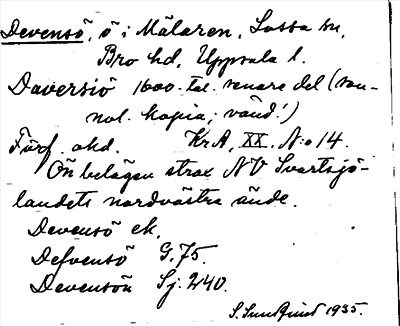 Devensö, ö i Mälaren, Lossa sn,
Bro hd, Uppsala l.
Daversiö 1600-tal. senare del (san-
nol. kopia; vänd!)
Förf. okd. KrA, XX. N:o 14.
Ön belägen strax NV Svartsjö-
landets nordvästra ände.
Devensö ek.
Defvensö G. 75.
Devensön Sj. 240.
S. Sundquist 1935.